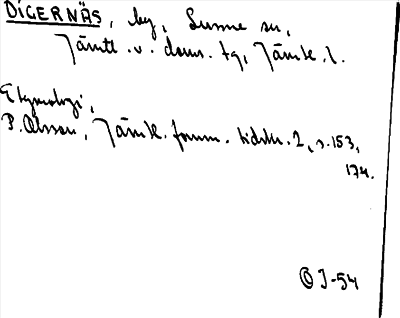 DIGERNÄS, by, Sunne sn,
Jämtl. v. doms. tg, Jämtl. l.
Etymologi,
P. Olsson, Jämtl. fornm. tidskr. 2, s. 153,
174.
O J-54